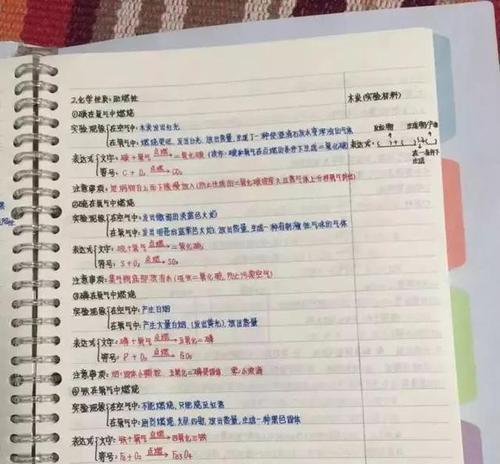 2.化学性质:助燃性
木炭(实验材料)
①碳在氧气中燃烧
实验现象 在空气中:木炭发出红光
在氧气中:燃烧更旺,发出白光,放出热量,生成了一种使澄清石灰水变浑浊的气体
表达式 文字:碳+氧气 点燃→ 二氧化碳
符号:C+O₂ 点燃→ CO₂
注意事项:
②硫在氧气中燃烧
实验现象 在空气中:发出微弱的淡蓝色火焰
在氧气中:发出明亮的蓝紫色火焰,放出热量,生成一种有刺激性气味的气体
表达式 文字:硫+氧气 点燃→ 二氧化硫
符号:S+O₂ 点燃→ SO₂
注意事项:集气瓶底部放有水(吸收二氧化硫,防止污染空气)
③磷在氧气中燃烧
实验现象 在空气中:产生白烟
在氧气中:产生大量白烟,(发出黄光),放出热量
表达式 文字:磷+氧气 点燃→ 五氧化二磷
符号:P+O₂ 点燃→ P₂O₅
注意事项:烟:固体小颗粒 五氧化二磷是固体 雾:小液滴
④铁在氧气中燃烧
实验现象 在空气中:不能燃烧,只能烧至红热
在氧气中:剧烈燃烧,火星四射,放出热量,生成一种黑色固体
表达式 文字:铁+氧气 点燃→ 四氧化三铁
符号:Fe+O₂ 点燃→ Fe₃O₄